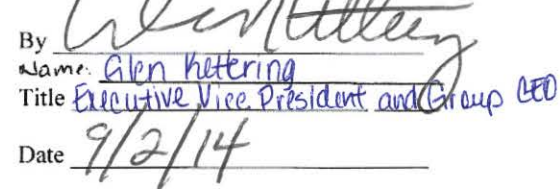 By
Name: Glen Kettering
Title Executive Vice President and Group CEO
Date 9/2/14